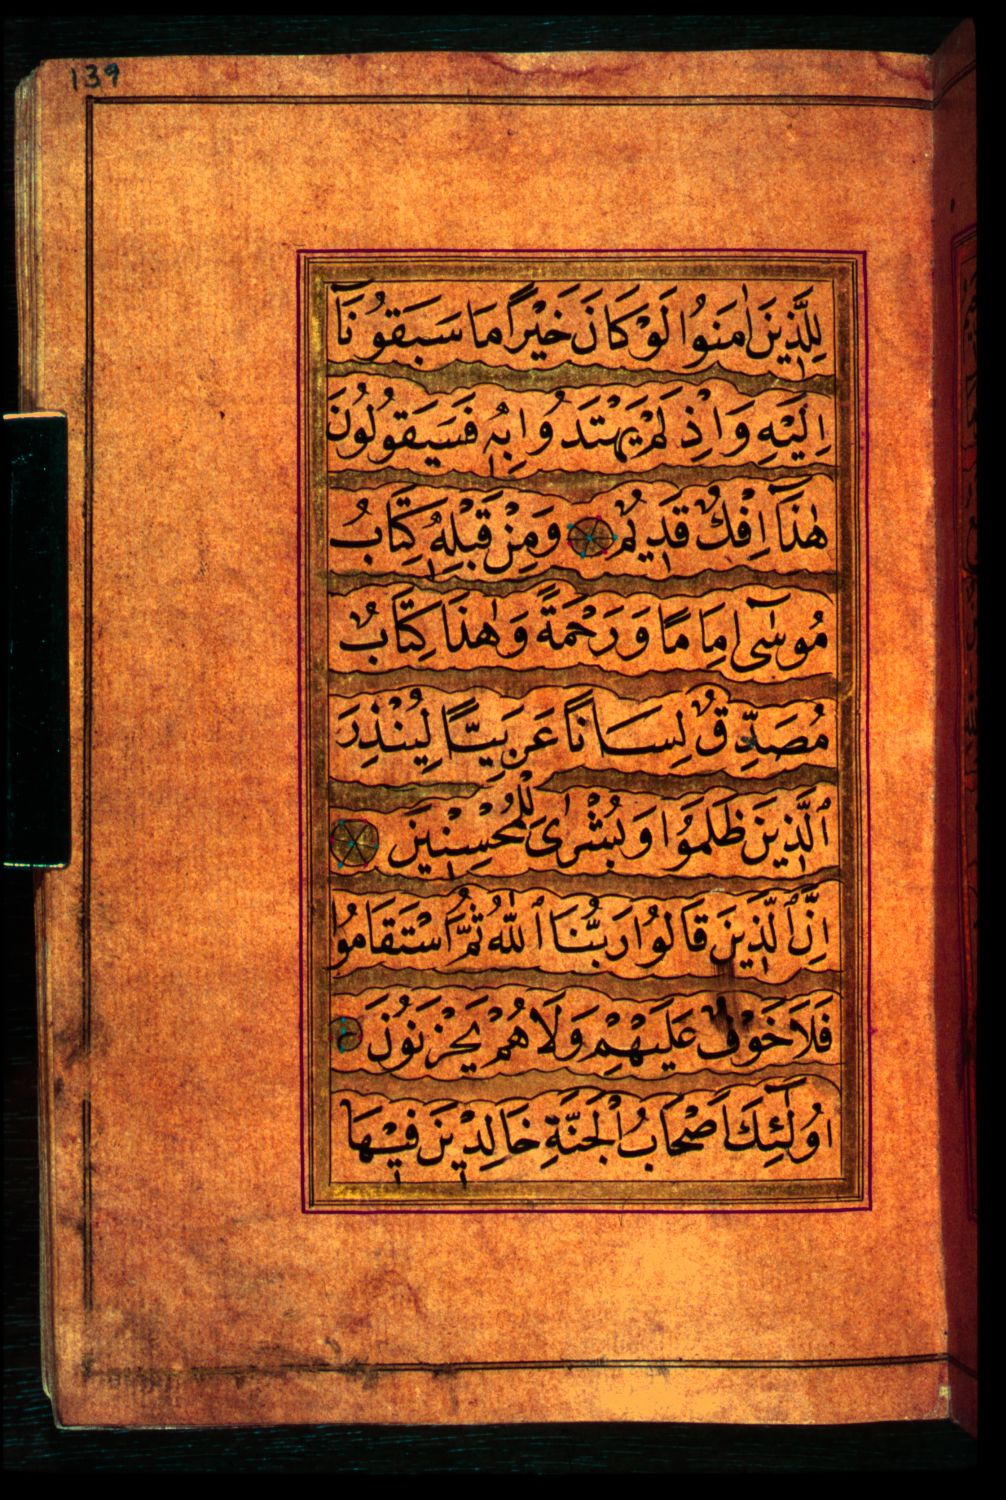 139
لِلَّذِينَ اٰمَنُوا لَوْ كَانَ خَيْراً مَا سَبَقُونَآ
اِلَيْهِ وَاِذْ لَمْ يَهْتَدُوا بِهٖ فَسَيَقُولُونَ
هٰذَآ اِفْكٌ قَدِيمٌ وَمِنْ قَبْلِهٖ كِتَابُ
مُوسٰٓى اِمَامًا وَرَحْمَةً وَهٰذَا كِتَابٌ
مُصَدِّقٌ لِسَانًا عَرَبِيًّا لِيُنْذِرَ
الَّذِينَ ظَلَمُوا وَبُشْرٰى لِلْمُحْسِنِينَ
اِنَّ الَّذِينَ قَالُوا رَبُّنَا اللّٰهُ ثُمَّ اسْتَقَامُوا
فَلَا خَوْفٌ عَلَيْهِمْ وَلَا هُمْ يَحْزَنُونَ
اُولٰٓئِكَ اَصْحَابُ الْجَنَّةِ خَالِدِينَ فِيهَا